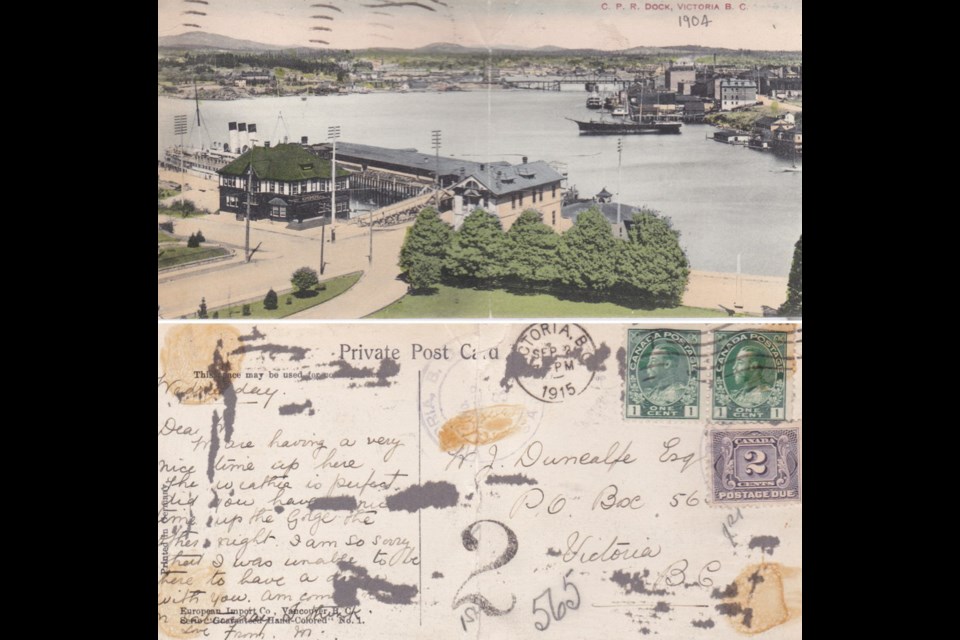 C. P. R. DOCK, VICTORIA B. C.
1904
Private Post Card
This space may be used for
VICTORIA, B.C.
SEP 2
PM
1915
CANADA POSTAGE
1 ONE CENT 1
CANADA POSTAGE
1 ONE CENT 1
CANADA
2
CENTS
POSTAGE DUE
Wednesday.
Dear
We are having a very
nice time up here
The weather is perfect
did you have nice
time up the Gorge the
other night. I am so sorry
that I was unable to be
there to have a
with you. am
Love from M.
W. J. Duncalfe Esq
P.O. Box. 56
Victoria
B.C
2
1st
565
1st
Printed in Germany
European Import Co., Vancouver, B. C.
Series Guaranteed Hand-Colored No. 1.